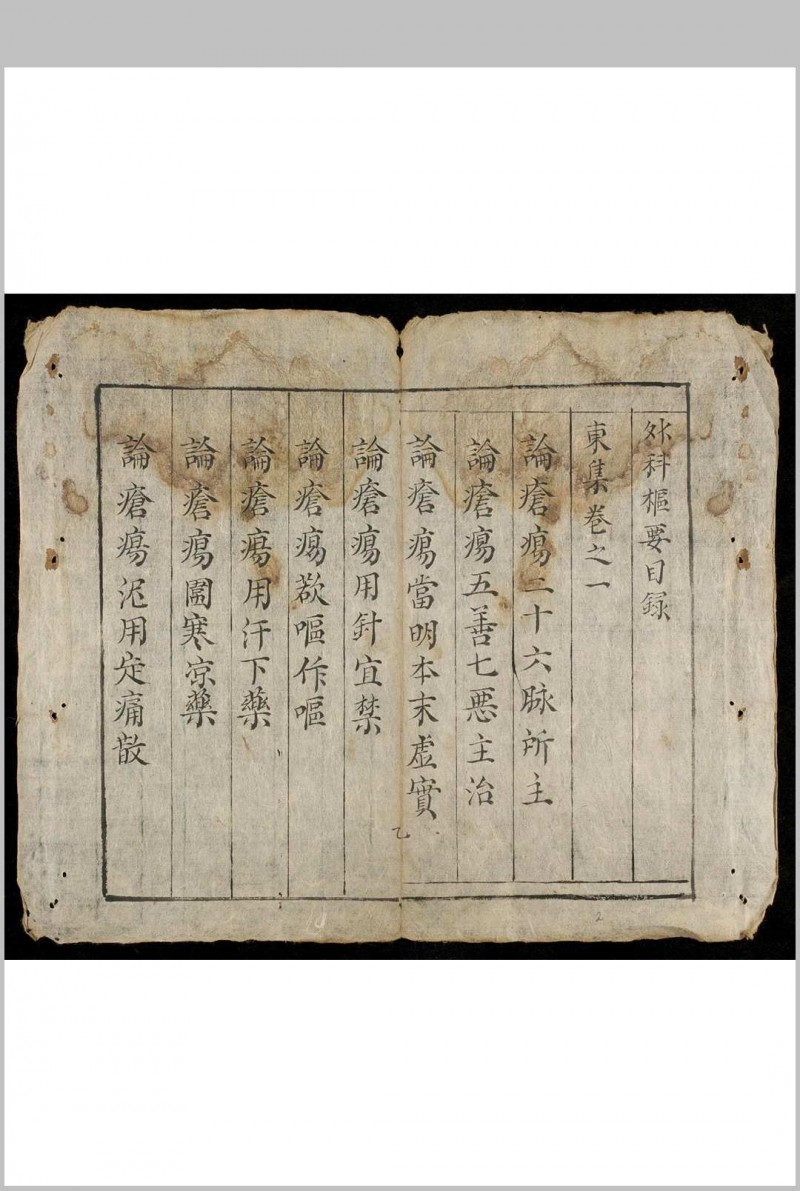 外科樞要目録
東集卷之一
論瘡瘍二十六脉所主
論瘡瘍五善七惡主治
論瘡瘍當明本末虛實
論瘡瘍用針宜禁
論瘡瘍欲嘔作嘔
論瘡瘍用汗下藥
論瘡瘍圍寒凉藥
論瘡瘍泥用定痛散
乙
2